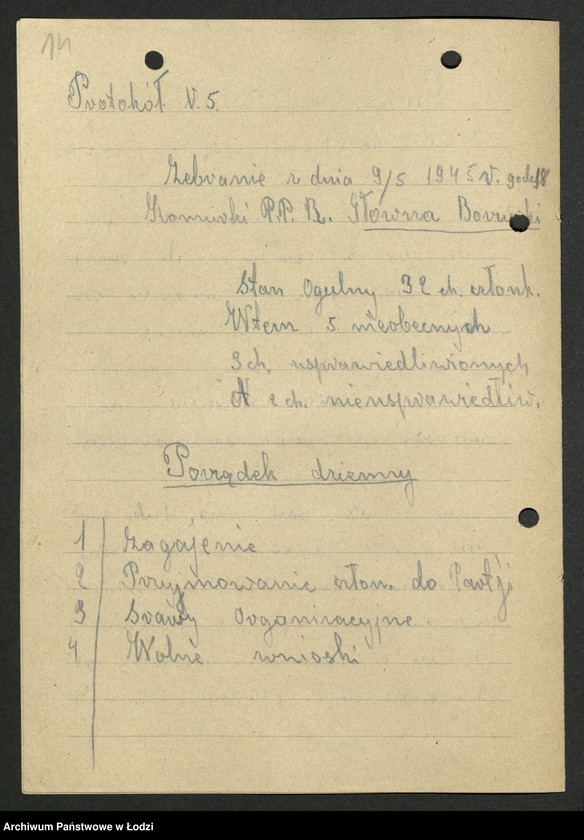 14
Protokół N. 5.
Zebranie z dnia 9/5 1945 r. godz 18
Komurki P.P.R. Główna Borucki
Stan Ogulny 32 ch. członk.
Wtem 5 nieobecnych
3 ch. usprawiedliwionych
A 2 ch. nieusprawiedliw.
Porządek dzienny
1 Zagajenie
2 Przyjmowanie człon. do Partji
3 Srawy Organizacyjne
4 Wolne wnioski
Archiwum Państwowe w Łodzi